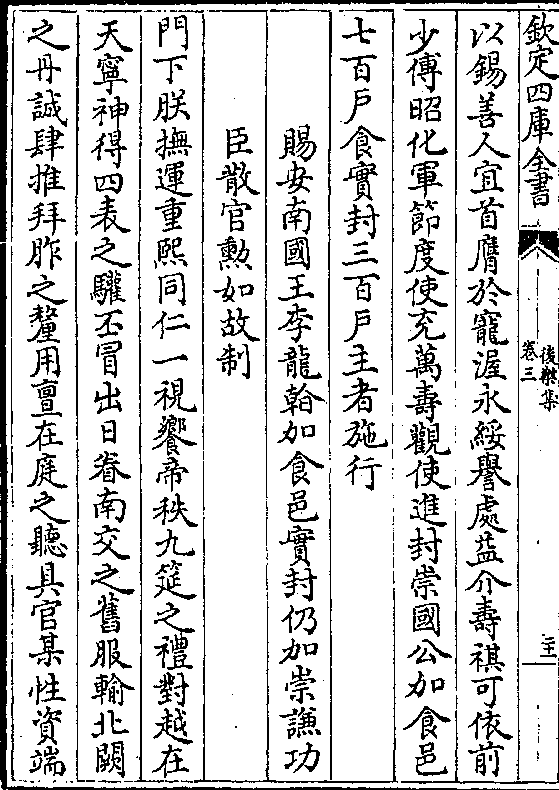 欽定四庫全書
後樂集
卷三
二十
以錫善人宜首膺於寵渥永綏譽處益介壽祺可依前
少傅昭化軍節度使充萬壽觀使進封崇國公加食邑
七百戶食實封三百戶主者施行
賜安南國王李龍翰加食邑實封仍加崇謙功
臣散官勲如故制
門下朕撫運重熙同仁一視饗帝秩九筵之禮對越在
天寧神得四表之驩丕冒出日眷南交之舊服輸北闕
之丹誠肆推拜胙之釐用亶在庭之聽具官某性資端